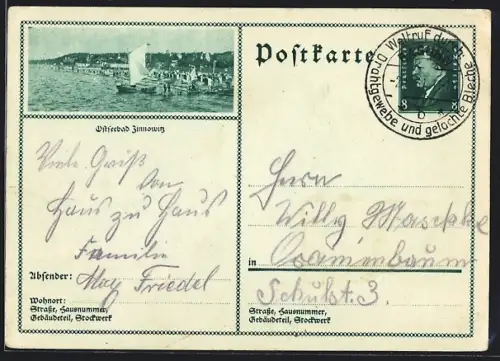 Postkarte
Weltruf durch
Drahtgewebe und gelochte Bleche
8 8
b
Ostseebad Zinnowitz
Viele Grüß
von
Haus zu Haus
Familie
Absender: Max Friedel
Wohnort:
Straße, Hausnummer,
Gebäudeteil, Stockwerk
Herrn
Willy Maschke
in Oranienbaum
Schulst. 3.
Straße, Hausnummer,
Gebäudeteil, Stockwerk